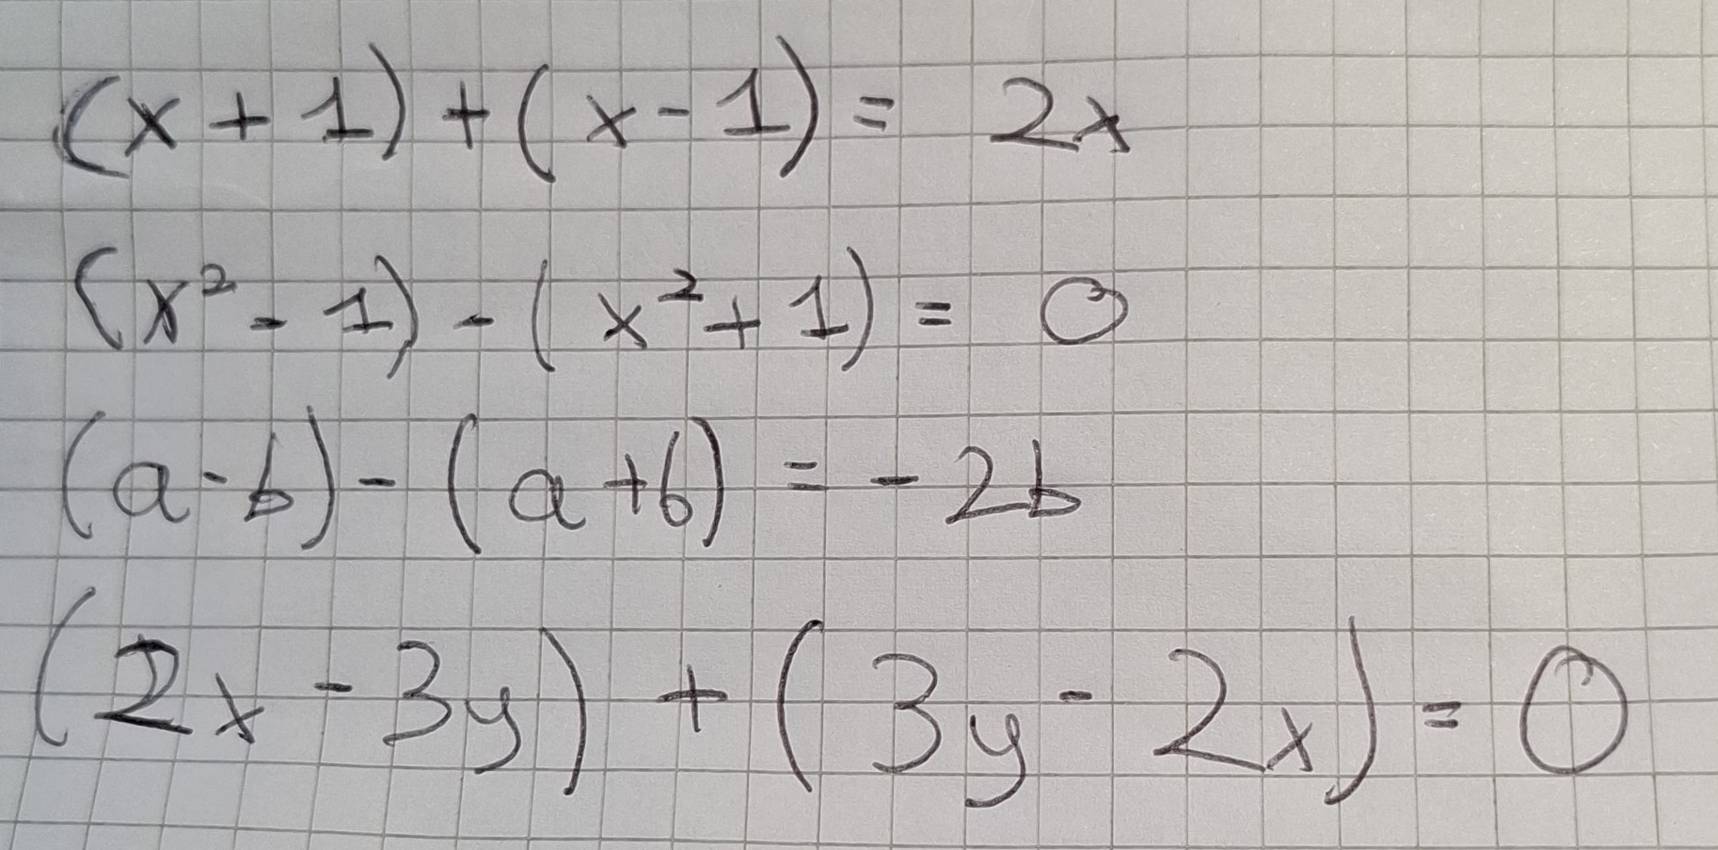 (x + 1) + (x - 1) = 2x
(x² - 1) - (x² + 1) = 0
(a - b) - (a + b) = - 2b
(2x - 3y) + (3y - 2x) = 0